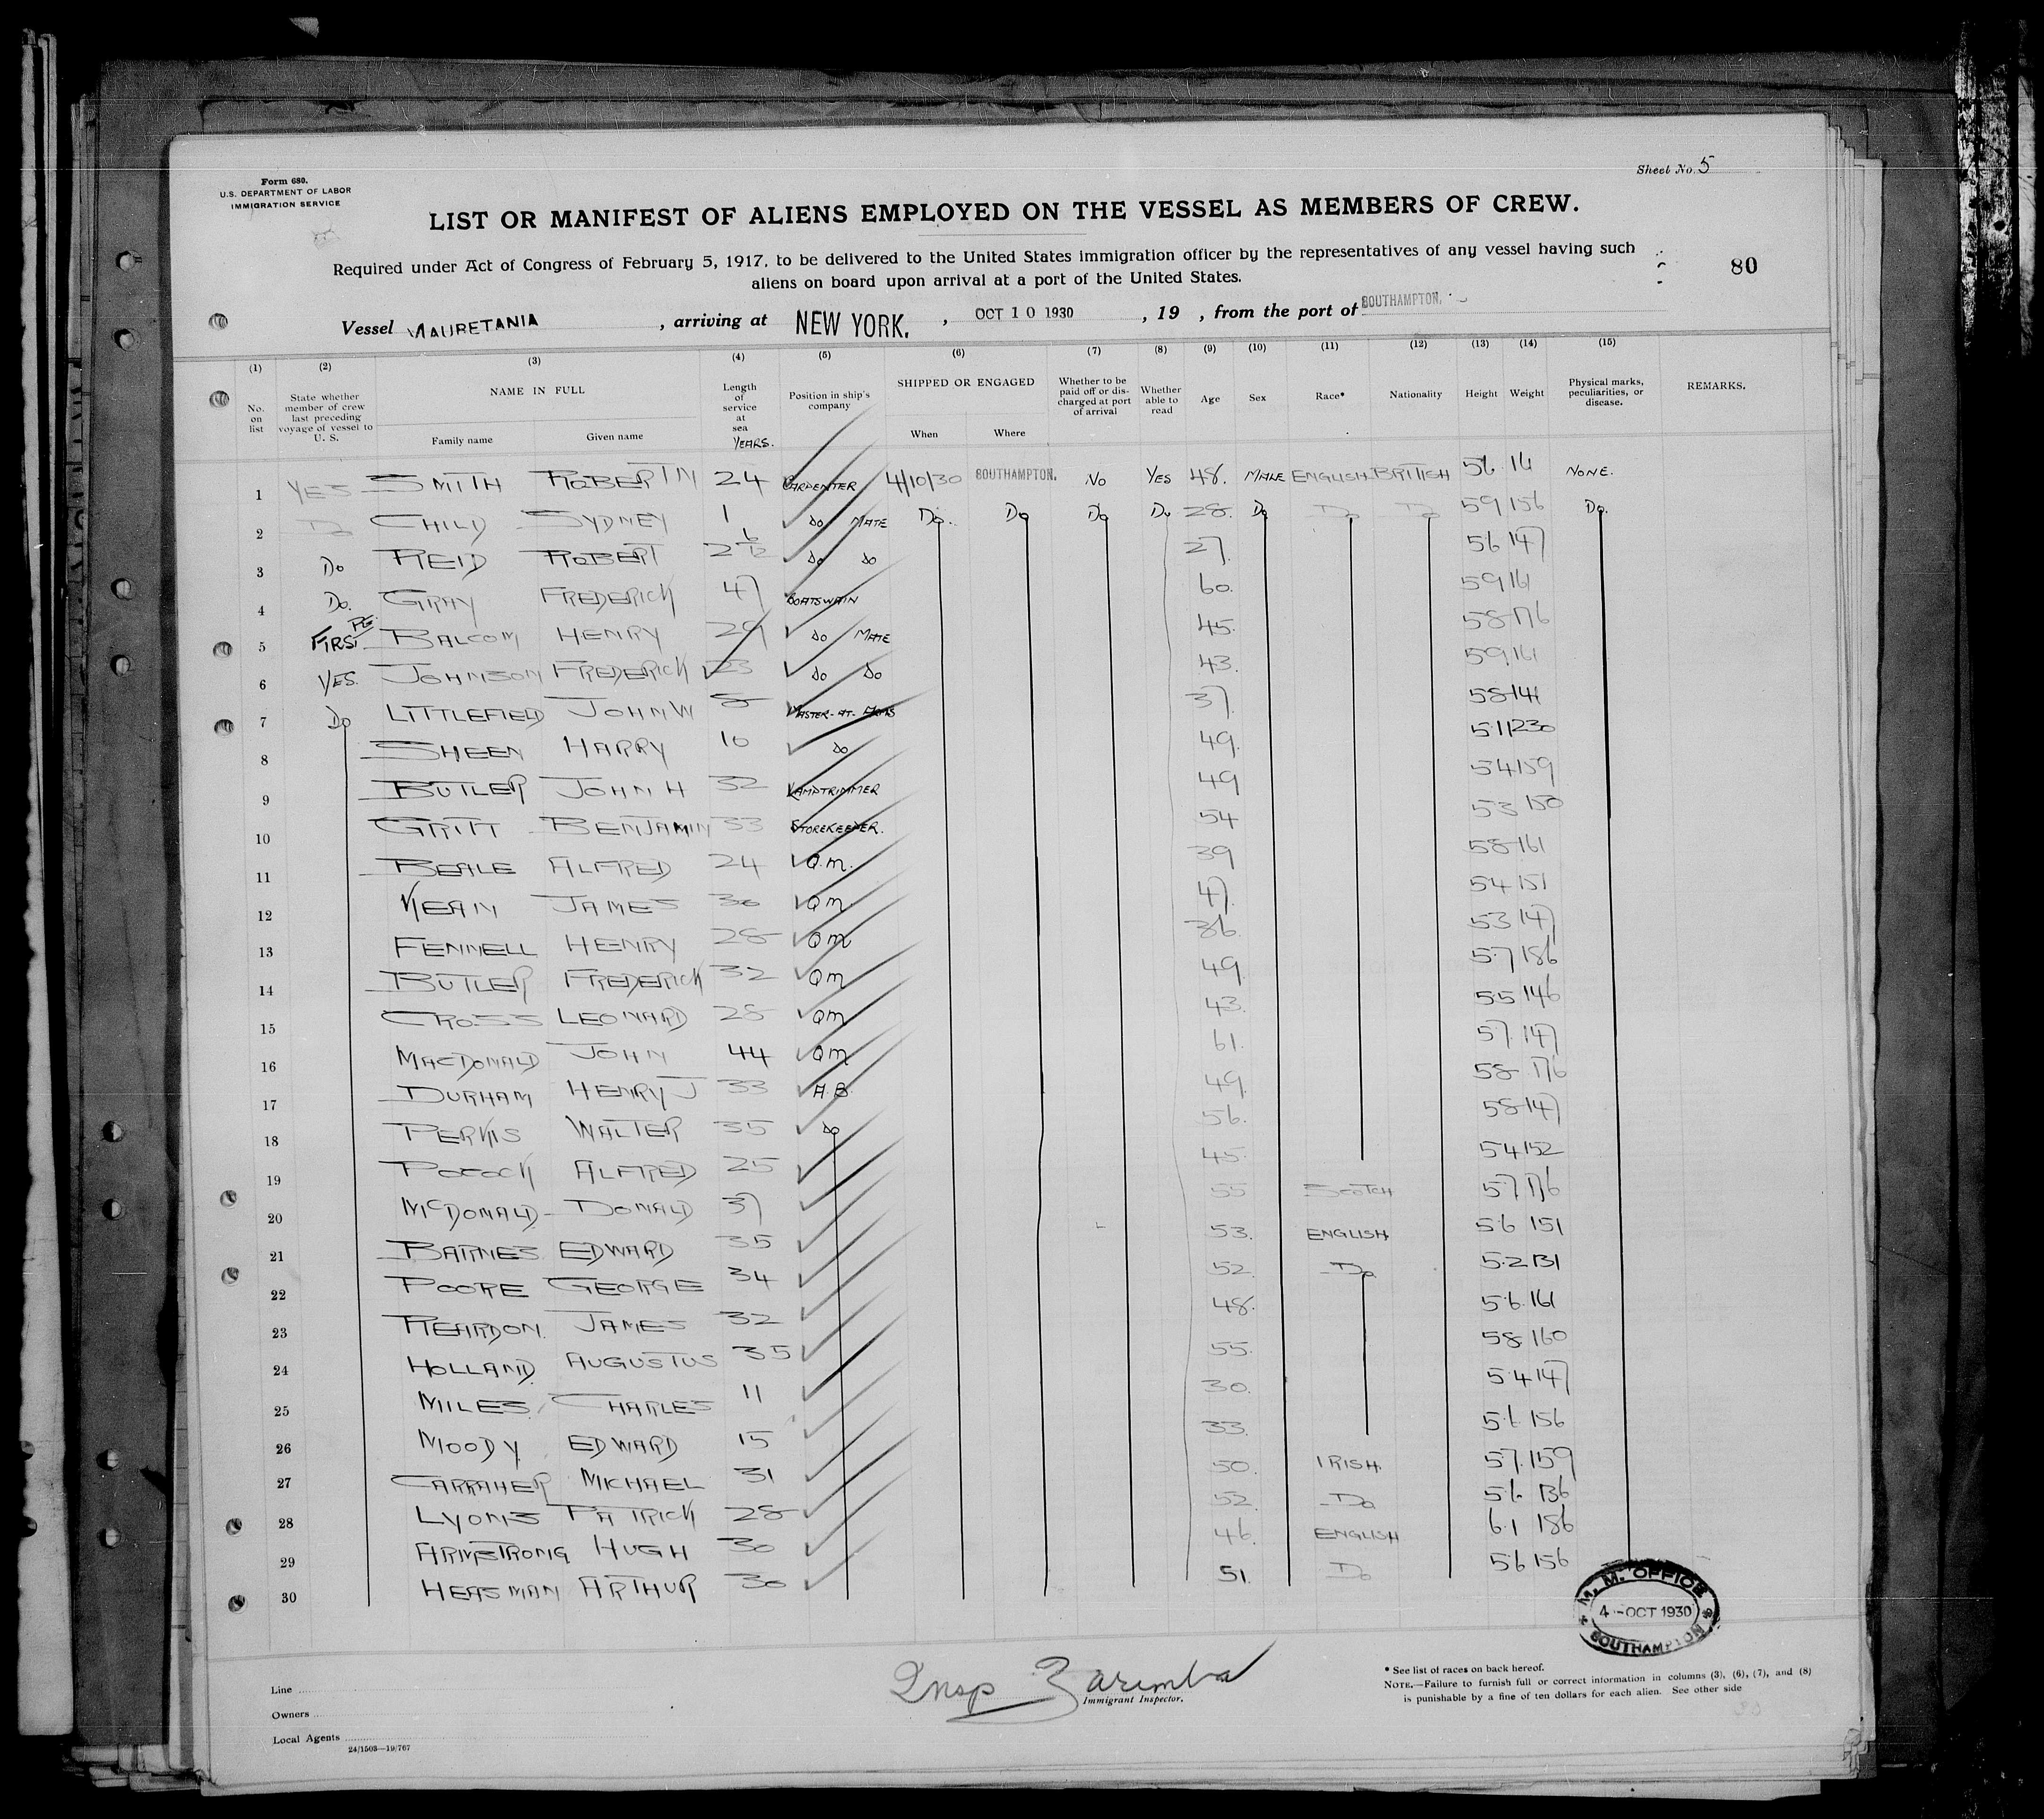 Sheet No. 5
Form 680.
U.S. DEPARTMENT OF LABOR
IMMIGRATION SERVICE
LIST OR MANIFEST OF ALIENS EMPLOYED ON THE VESSEL AS MEMBERS OF CREW.
Required under Act of Congress of February 5, 1917, to be delivered to the United States immigration officer by the representatives of any vessel having such
aliens on board upon arrival at a port of the United States.
80
Vessel MAURETANIA, arriving at NEW YORK., OCT 10 1930, 19 , from the port of SOUTHAMPTON.
(1) (2) (3) (4) (5) (6) (7) (8) (9) (10) (11) (12) (13) (14) (15)
No. on list
State whether member of crew last preceding voyage of vessel to U. S.
NAME IN FULL
Family name Given name
Length of service at sea YEARS.
Position in ship's company
SHIPPED OR ENGAGED
When Where
Whether to be paid off or discharged at port of arrival
Whether able to read
Age
Sex
Race*
Nationality
Height
Weight
Physical marks, peculiarities, or disease.
REMARKS.
1 YES SMITH ROBERT 24 CARPENTER 4/10/30 SOUTHAMPTON. NO YES 48. MALE ENGLISH BRITISH NONE.
2 Do CHILD SYDNEY 1 do MATE Do. Do Do Do 28. Do Do Do 59 156 Do.
3 Do REID ROBERT do do 27. 56 147
4 Do. GRAY FREDERICK 47 BOATSWAIN 60. 59 161
5 FIRST BALCOM HENRY 29 do MATE 45. 58 176
6 YES. JOHNSON FREDERICK 23 do do 43. 59 161
7 Do LITTLEFIELD JOHN W 8 MASTER-AT-ARMS 37. 58 141
8 SHEEN HARRY 10 do 49. 511 230
9 BUTLER JOHN H 32 LAMPTRIMMER 49 54 159
10 GRITT BENJAMIN 33 STOREKEEPER. 54 53 150
11 BEALE ALFRED 24 Q.M. 39 58 161
12 KEAN JAMES 30 QM. 47. 54 151
13 FENNELL HENRY 28 QM 36. 53 147
14 BUTLER FREDERICK 32 QM 49. 57 186
15 CROSS LEONARD 28 QM 43. 55 146
16 MACDONALD JOHN 44 QM 61. 57. 147
17 DURHAM HENRY J 33 A.B. 49. 58 176
18 PERKIS WALTER 35 do 56. 58 147
19 POCOCK ALFRED 25 45. 54 152
20 McDONALD DONALD 37 55 SCOTCH 57 176
21 BARNES EDWARD 35 53. ENGLISH 56 151
22 POORE GEORGE 34 52. Do 52 131
23 REARDON. JAMES 32 48. 5.6. 161
24 HOLLAND AUGUSTUS 35 55. 58 160
25 MILES CHARLES 11 30. 5.4 147
26 MOODY EDWARD 15 33. 56 156
27 CARRAHER MICHAEL 31 50. IRISH. 57. 159
28 LYONS PATRICK 28 52. Do 56 136
29 ARMSTRONG HUGH 30 46. ENGLISH 6.1 186
30 HEASMAN ARTHUR 30 51. Do 56 156
M. M. OFFICE
4 - OCT 1930
SOUTHAMPTON
Line
Owners
Local Agents
24/1503—19/767
Insp Zaremba
Immigrant Inspector.
* See list of races on back hereof.
NOTE.—Failure to furnish full or correct information in columns (3), (6), (7), and (8)
is punishable by a fine of ten dollars for each alien. See other side